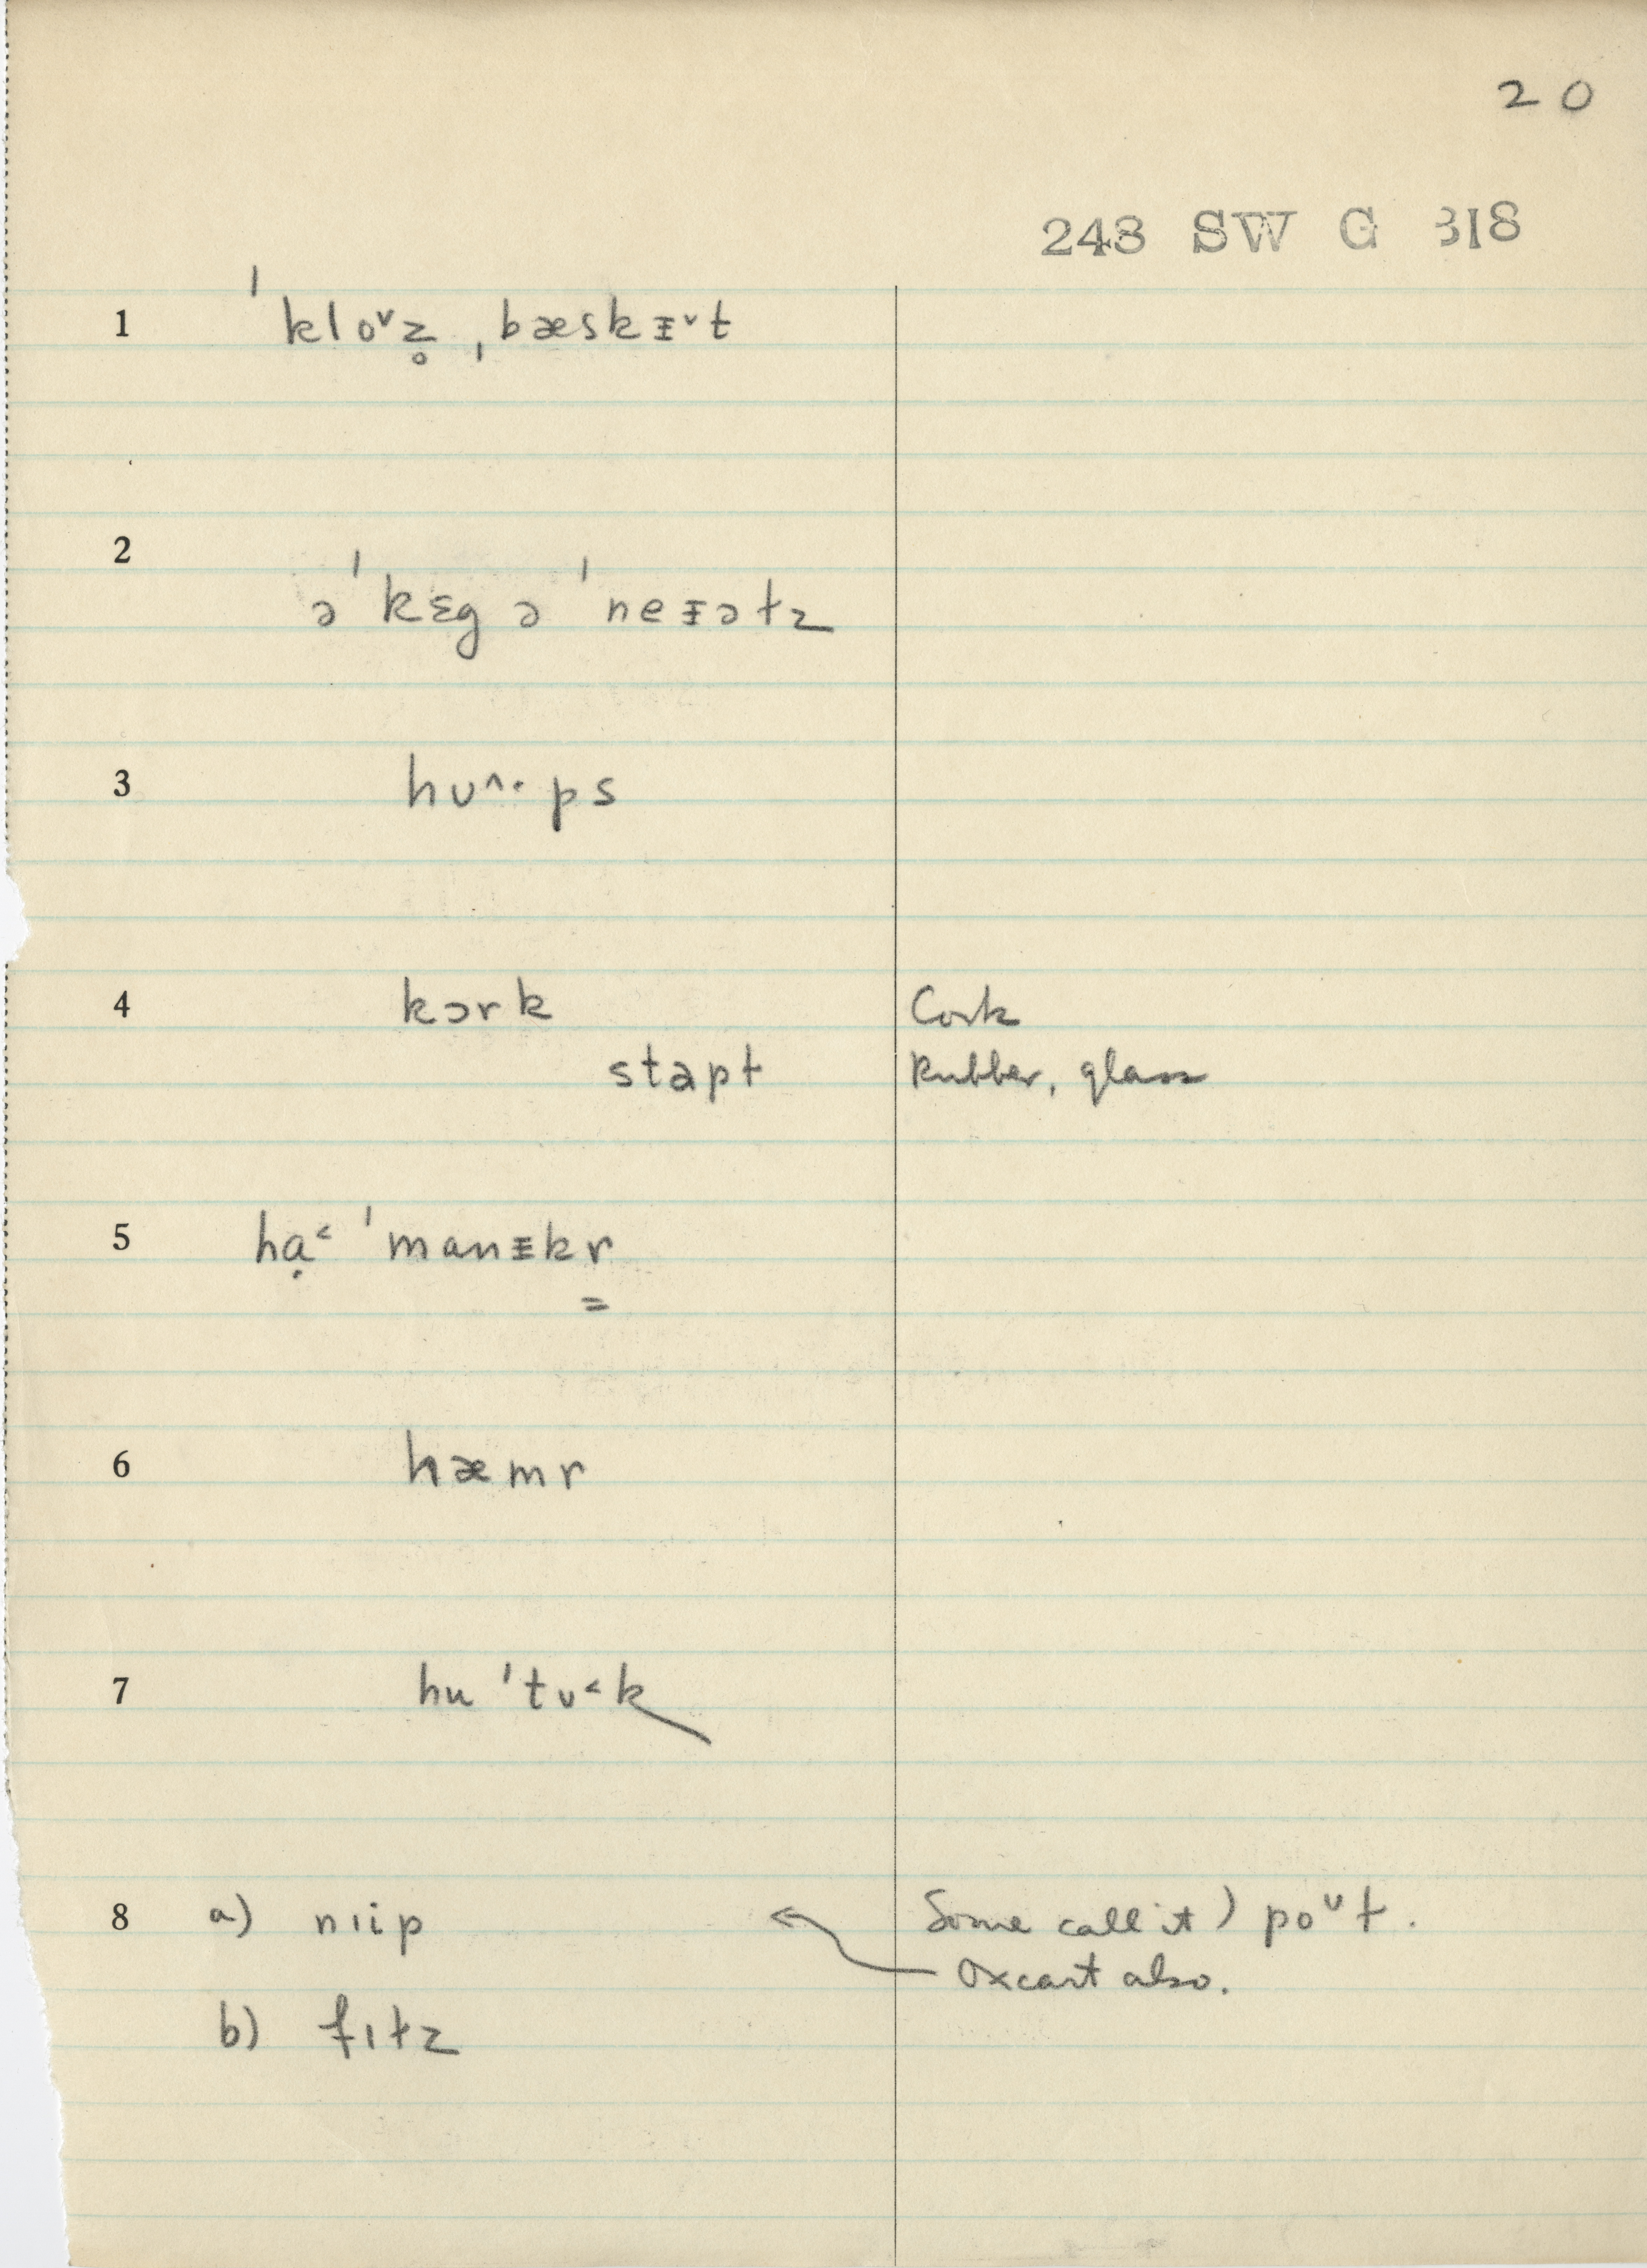 20
248 SW G 318
1 ˈkloᵛz̥ ˌbæskᵻ˅t
2 ə ˈkɛg ə ˈneᵻəɫz
3 hʊ^·ps
4 kɔrk Cork
stapɫ Rubber, glass
5 hạ˂ ˈmanᵻkr̳
6 hæmr
7 hu ˈtʊ˂k
8 a) nɪip Some call it) poᶷɫ.
Oxcart also.
b) fɪɫz